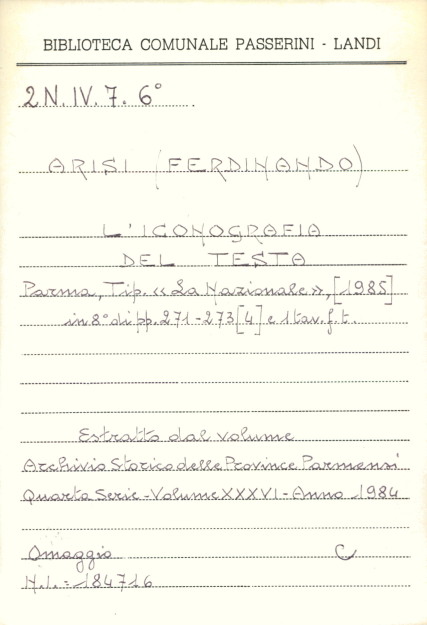 BIBLIOTECA COMUNALE PASSERINI - LANDI
2N.IV.7.6°
ARISI (FERDINANDO)
L'ICONOGRAFIA
DEL TESTA
Parma, Tip. «La Nazionale», [1985]
in 8° di pp. 271-273[4] e 1 tav. f.t.
Estratto dal volume
Archivio Storico delle Province Parmensi
Quarta Serie - Volume XXXVI - Anno 1984
Omaggio C
N.I. = 184716